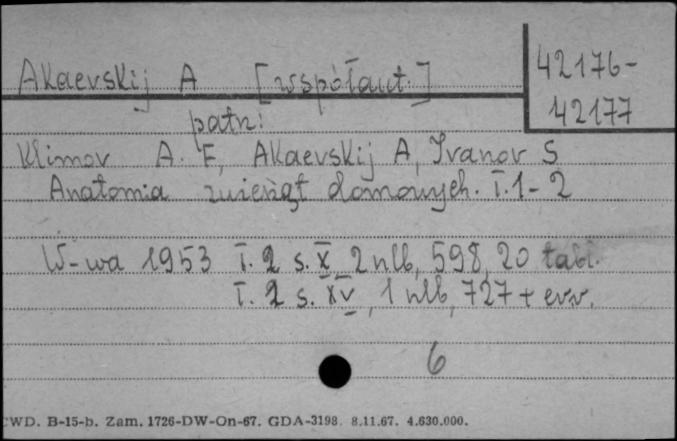 Akaevskij A [współaut.]
42176-
42177
patrz:
Klimov A. F., Akaevskij A, Ivanov S
Anatomia zwierząt domowych. T.1-2
W-wa 1953 T. 2 s. X, 2 nlb, 598, 20 tabl.
T. 2 s. XV, 1 nlb, 727 + err.
6
CWD. B-15-b. Zam. 1726-DW-On-67. GDA-3198. 8.11.67. 4.630.000.